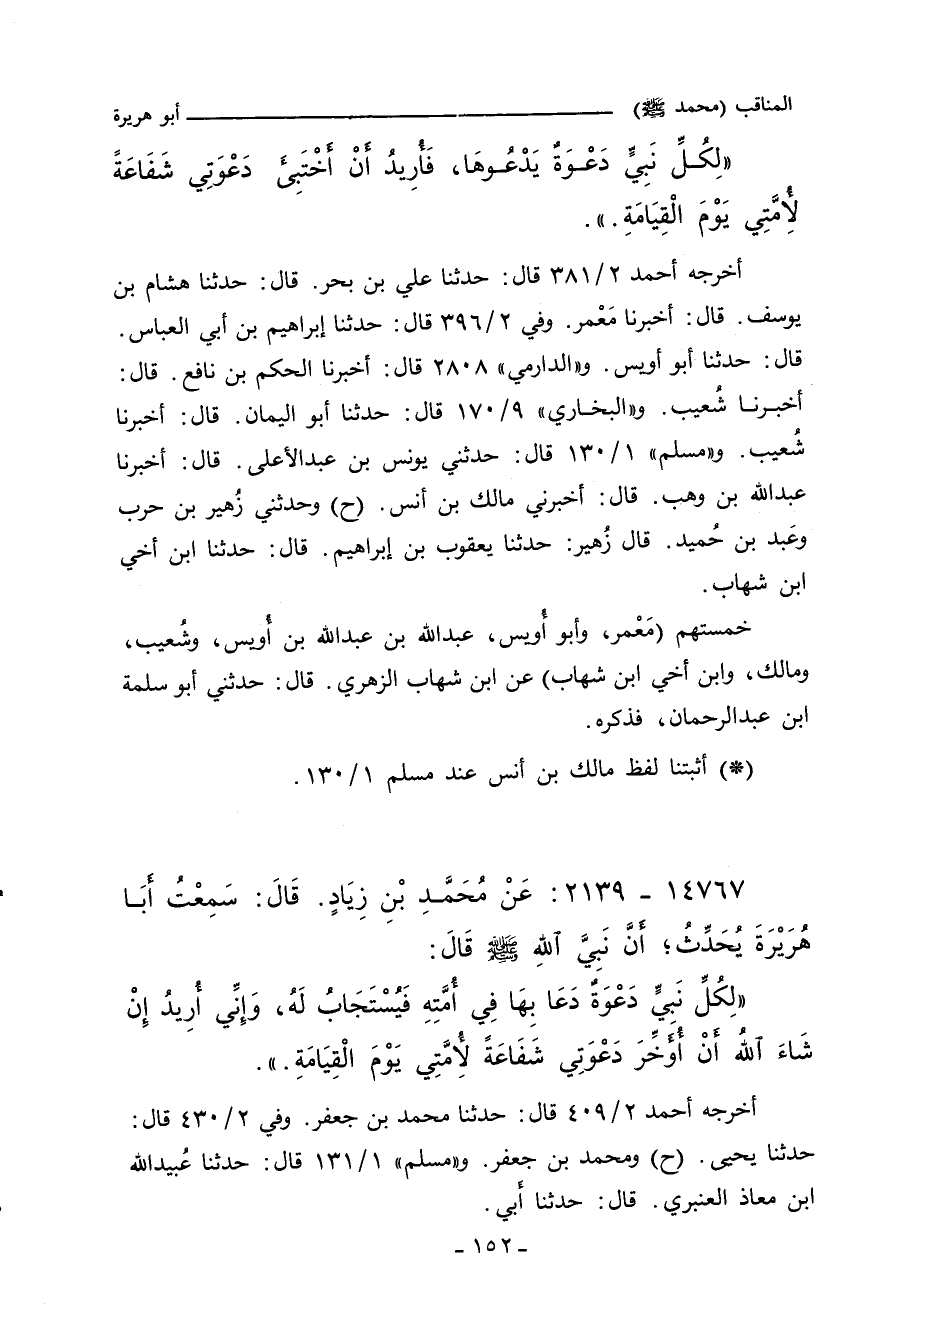 المناقب (محمد ﷺ) ــــــــــــــــــــ أبو هريرة
«لِكُـلِّ نَبِيٍّ دَعْـوَةٌ يَدْعُـوهَا، فَأُرِيدُ أَنْ أَخْتَبِئَ دَعْوَتِي شَفَاعَةً
لِأُمَّتِي يَوْمَ الْقِيَامَةِ.».
أخرجه أحمد ٣٨١/٢ قال: حدثنا علي بن بحر. قال: حدثنا هشام بن
يوسف. قال: أخبرنا مَعْمر. وفي ٣٩٦/٢ قال: حدثنا إبراهيم بن أبي العباس.
قال: حدثنا أبو أويس. و«الدارمي» ٢٨٠٨ قال: أخبرنا الحكم بن نافع. قال:
أخبـرنـا شُعيب. و«البخـاري» ١٧٠/٩ قال: حدثنا أبو اليمان. قال: أخبرنا
شُعيب. و«مسلم» ١٣٠/١ قال: حدثني يونس بن عبدالأعلى. قال: أخبرنا
عبدالله بن وهب. قال: أخبرني مالك بن أنس. (ح) وحدثني زُهير بن حرب
وعَبد بن حُميد. قال زُهير: حدثنا يعقوب بن إبراهيم. قال: حدثنا ابن أخي
ابن شهاب.
خمستهم (مَعْمر، وأبو أُويس، عبدالله بن عبدالله بن أُويس، وشُعيب،
ومالك، وابن أخي ابن شهاب) عن ابن شهاب الزهري. قال: حدثني أبو سلمة
ابن عبدالرحمان، فذكره.
(*) أثبتنا لفظ مالك بن أنس عند مسلم ١٣٠/١.
١٤٧٦٧ - ٢١٣٩: عَنْ مُحَمَّـدِ بْنِ زِيَادٍ. قَالَ: سَمِعْتُ أَبَـا
هُرَيْرَةَ يُحَدِّثُ؛ أَنَّ نَبِيَّ اللهِ ﷺ قَالَ:
«لِكُلِّ نَبِيٍّ دَعْوَةٌ دَعَا بِهَا فِي أُمَّتِهِ فَيُسْتَجَابُ لَهُ، وَإِنِّي أُرِيدُ إِنْ
شَاءَ اللهُ أَنْ أُؤَخِّرَ دَعْوَتِي شَفَاعَةً لِأُمَّتِي يَوْمَ الْقِيَامَةِ.».
أخرجه أحمد ٤٠٩/٢ قال: حدثنا محمد بن جعفر. وفي ٤٣٠/٢ قال:
حدثنا يحيى. (ح) ومحمد بن جعفر. و«مسلم» ١٣١/١ قال: حدثنا عُبيدالله
ابن معاذ العنبري. قال: حدثنا أَبي.
- ١٥٢ -